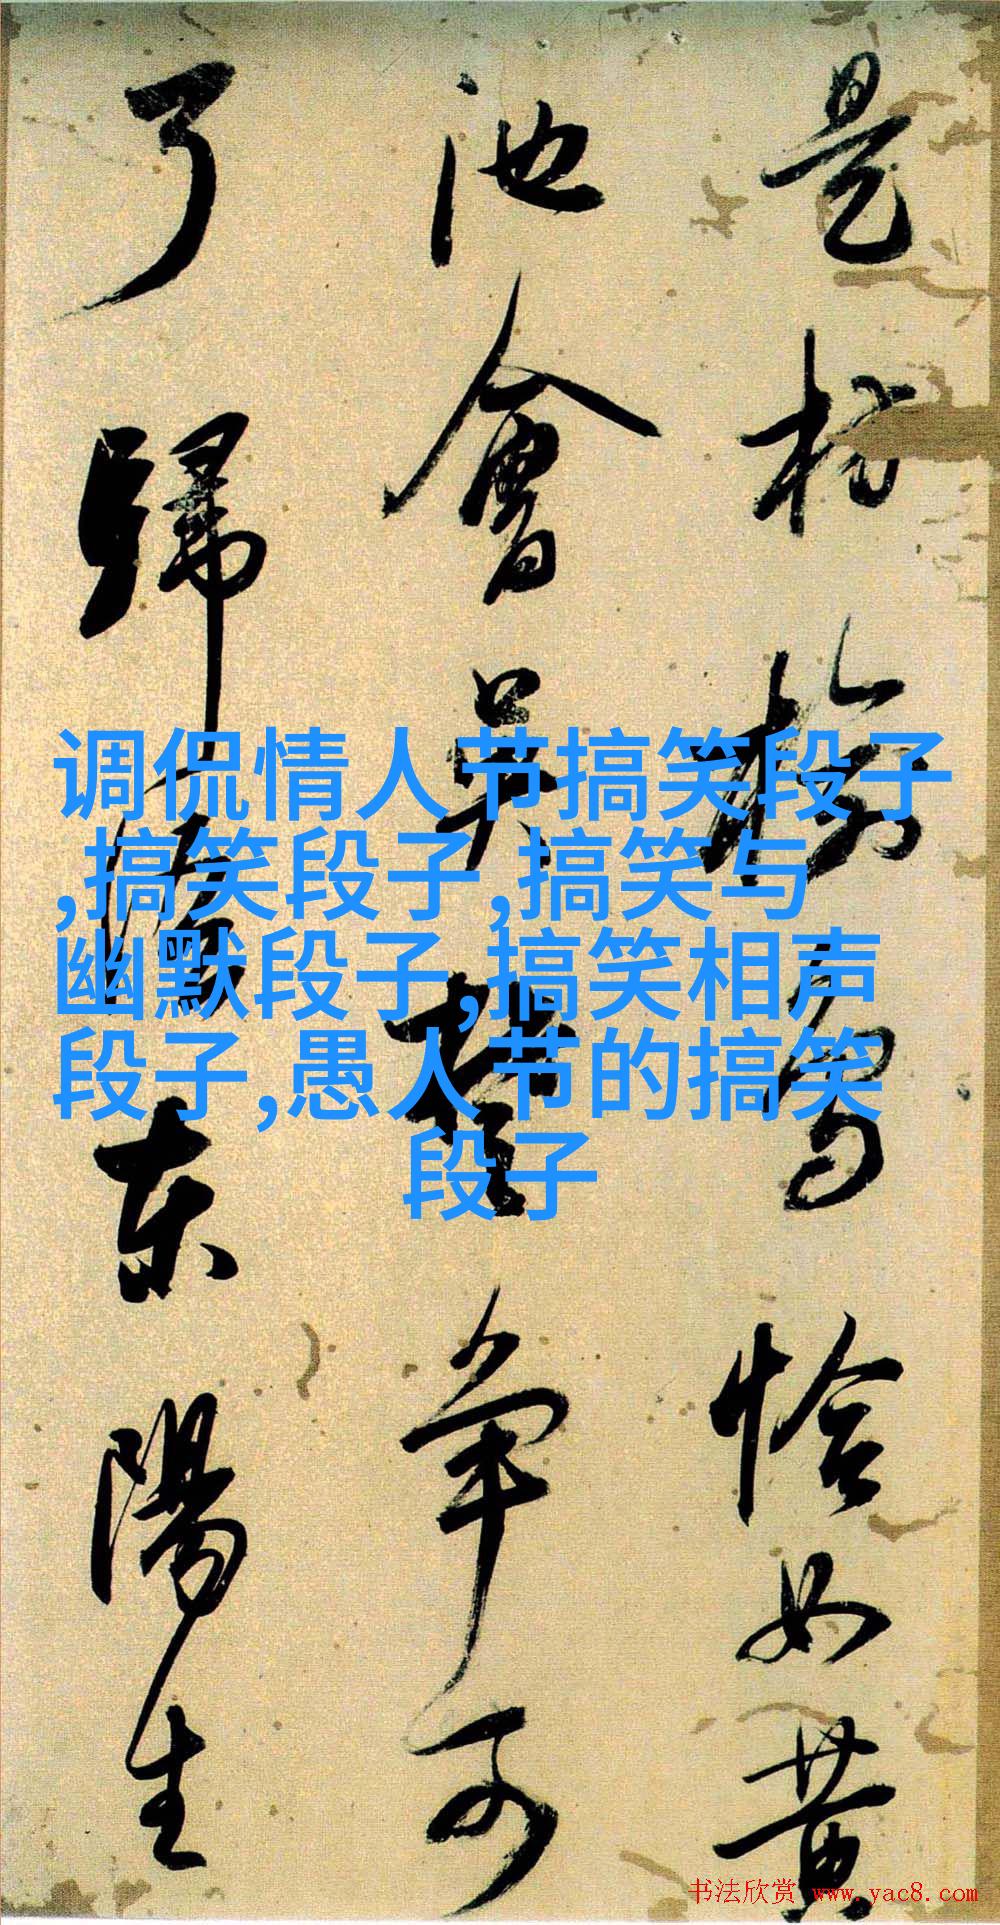 是枋榆恰如黃
池會吳楚爭
了歸東陽生
调侃情人节搞笑段子
,搞笑段子,搞笑与
幽默段子,搞笑相声
段子,愚人节的搞笑
段子
书法欣赏 www.yac8.com